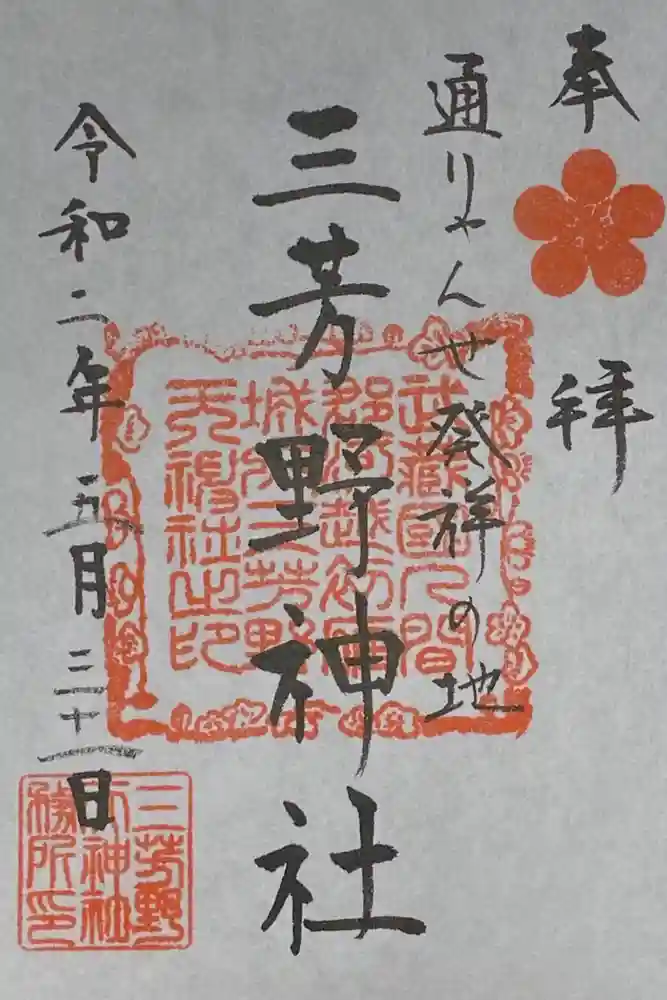 奉拝
通りゃんせ発祥の地
三芳野神社
令和二年五月三十一日
武蔵國入間
郡河越初雁
城内三芳野
天神社之印
三芳野